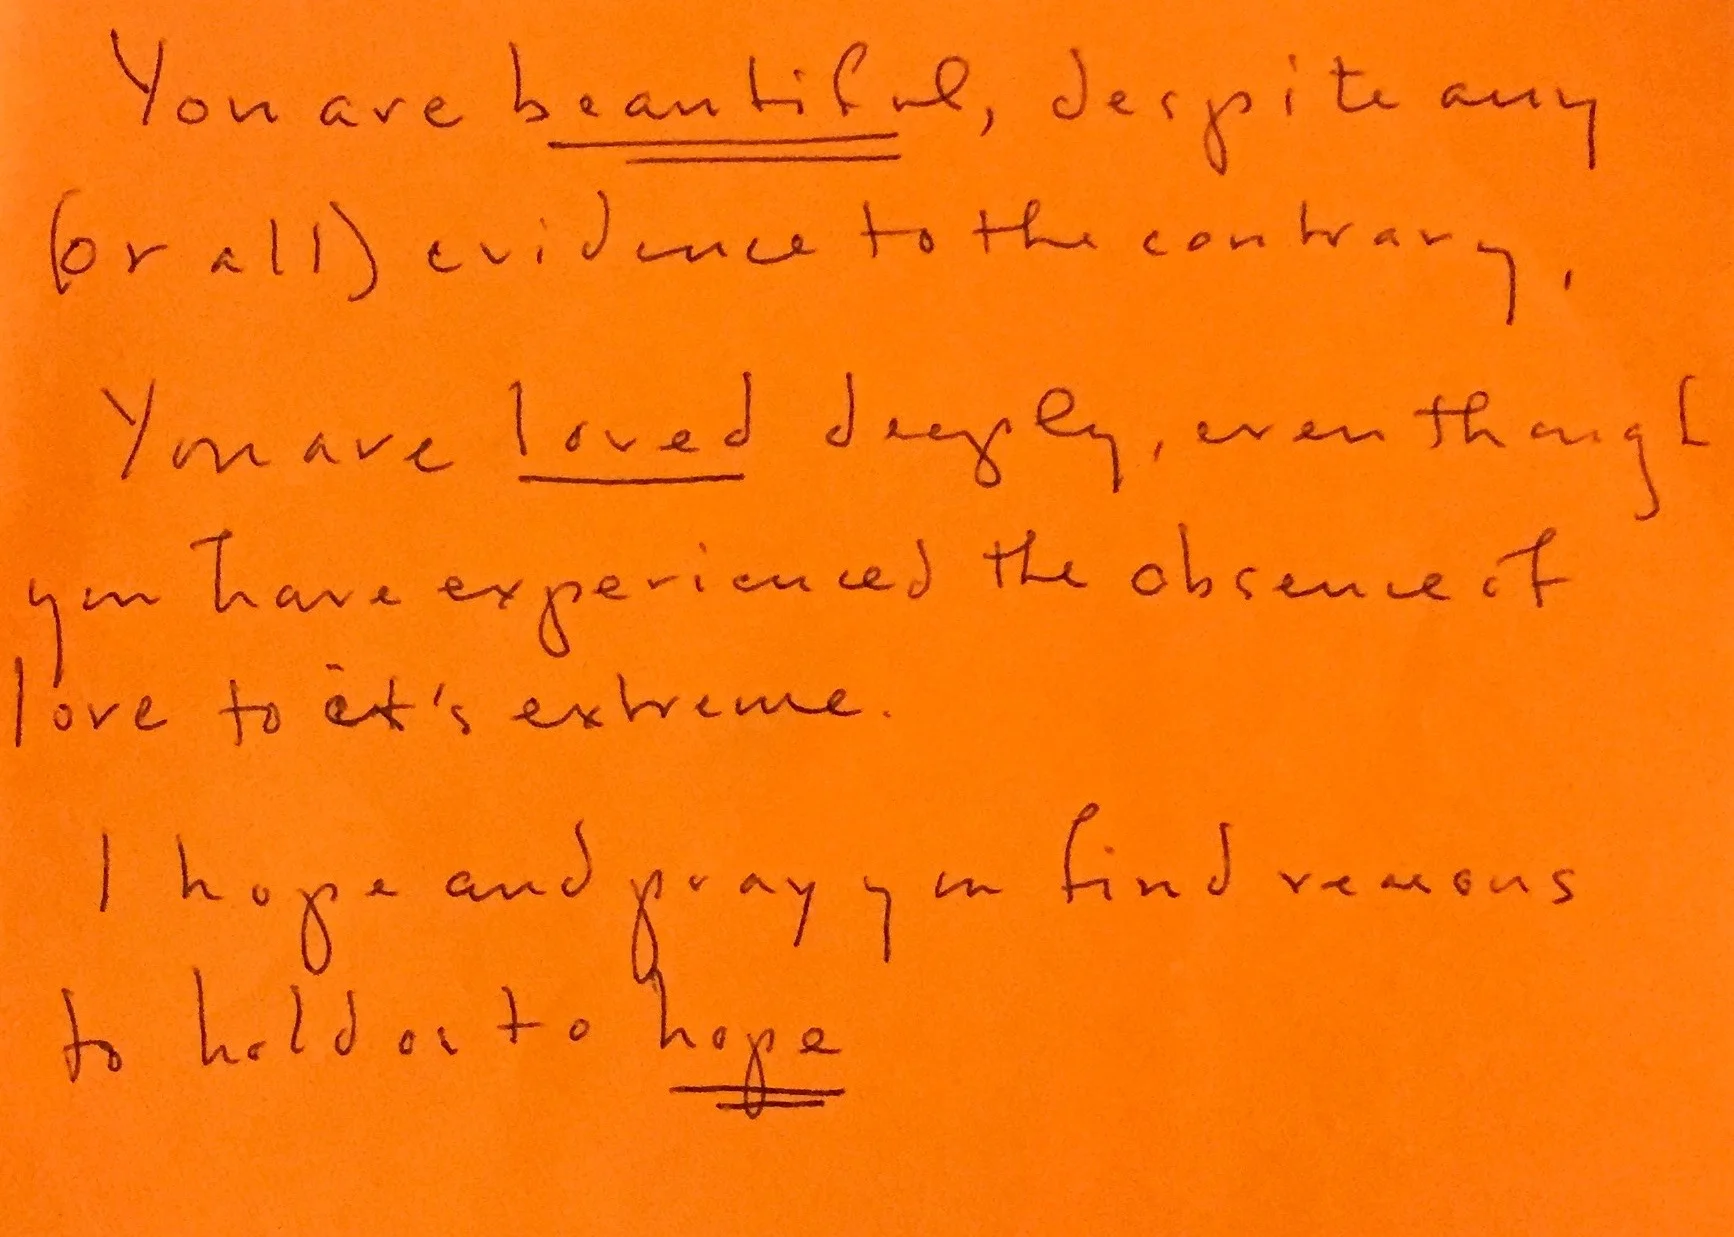 You are beautiful, despite any
(or all) evidence to the contrary.
You are loved deeply, even though
you have experienced the absence of
love to it's extreme.
I hope and pray you find reasons
to hold on to hope